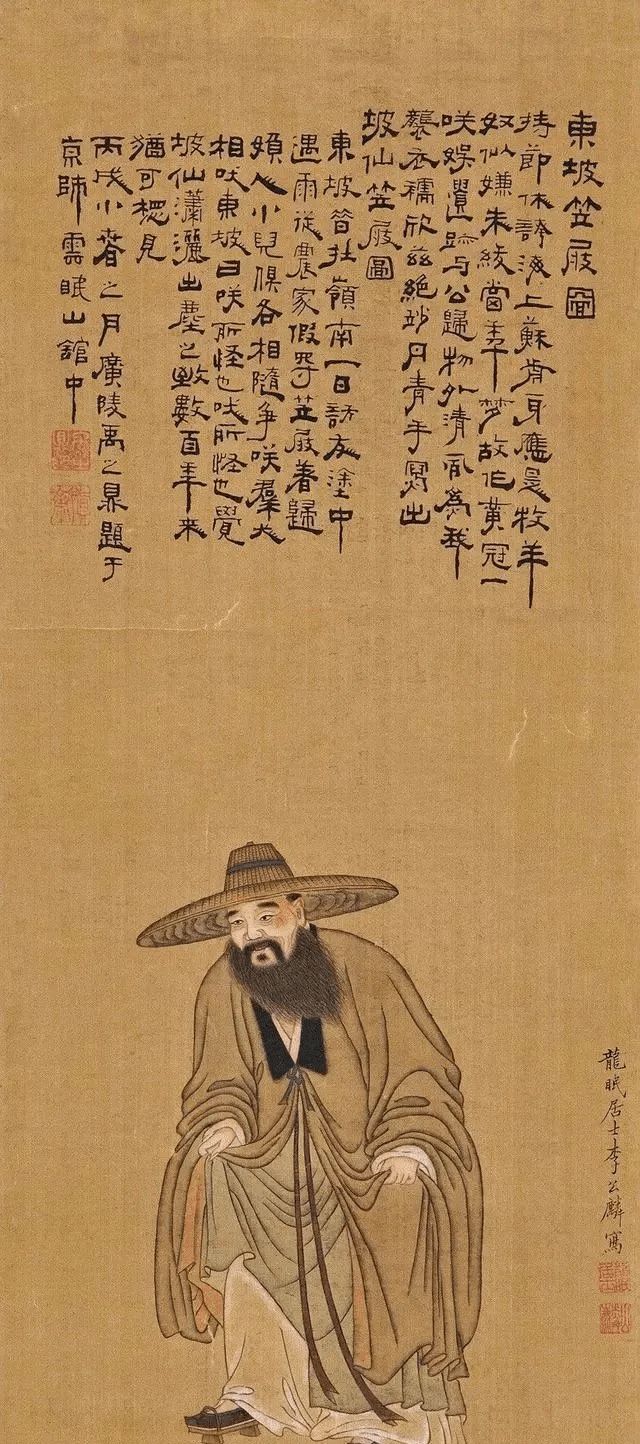 東坡笠屐圖
持節休誇海上蘇前身應是牧羊
奴似嫌朱紱當年夢故作黃冠一
咲娛遺跡与公歸物外清風為我
襲衣襦欣茲絕妙丹青手寫出
坡仙笠屐圖
東坡昔在嶺南一日訪友塗中
遇雨從農家假得笠屐着歸
婦人小兒俱各相隨爭咲羣犬
相吠東坡曰咲所怪也吠所怪也覺
坡仙瀟灑出塵之致數百年來
猶可想見
丙戌小春之月廣陵禹之鼎題于
京師雲眠山館中
龍眠居士李公麟寫